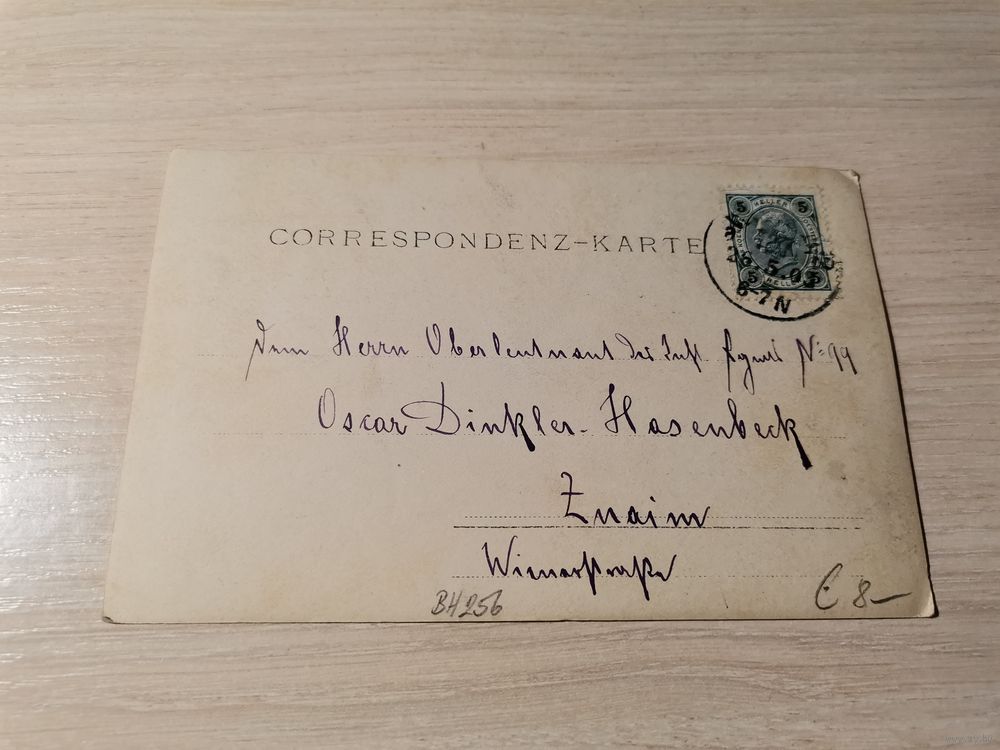 CORRESPONDENZ-KARTE
5 HELLER 5
5 HELLER 5
5.0
6-7N
Dem Herrn Oberleutnant des Inft. Regmts No 99
Oscar Dinkler-Hasenbeck
Znaim
Wienerstraße
BH256
€ 8-